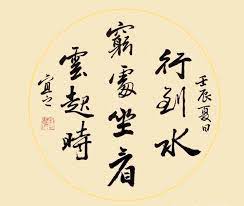 壬辰夏日
行到水
窮處坐看
雲起時
宜之